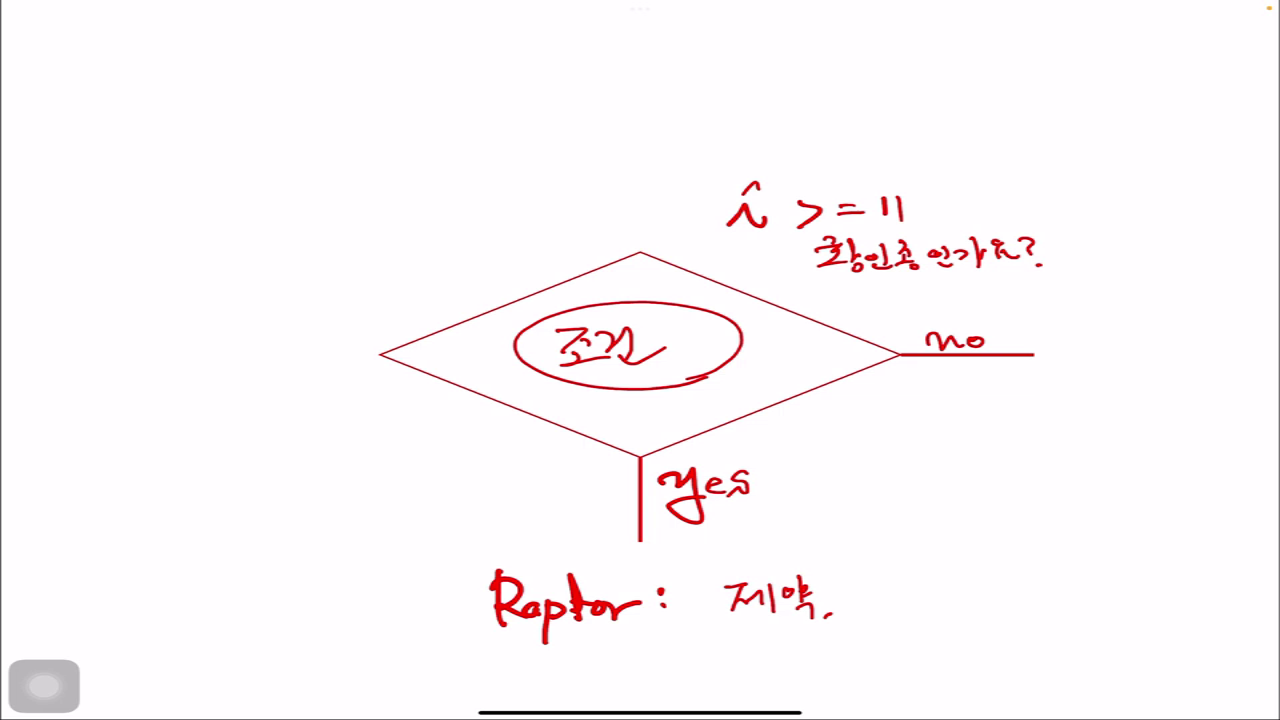 i >= 11
황인종인가요?
조건
no
yes
Raptor : 제약.